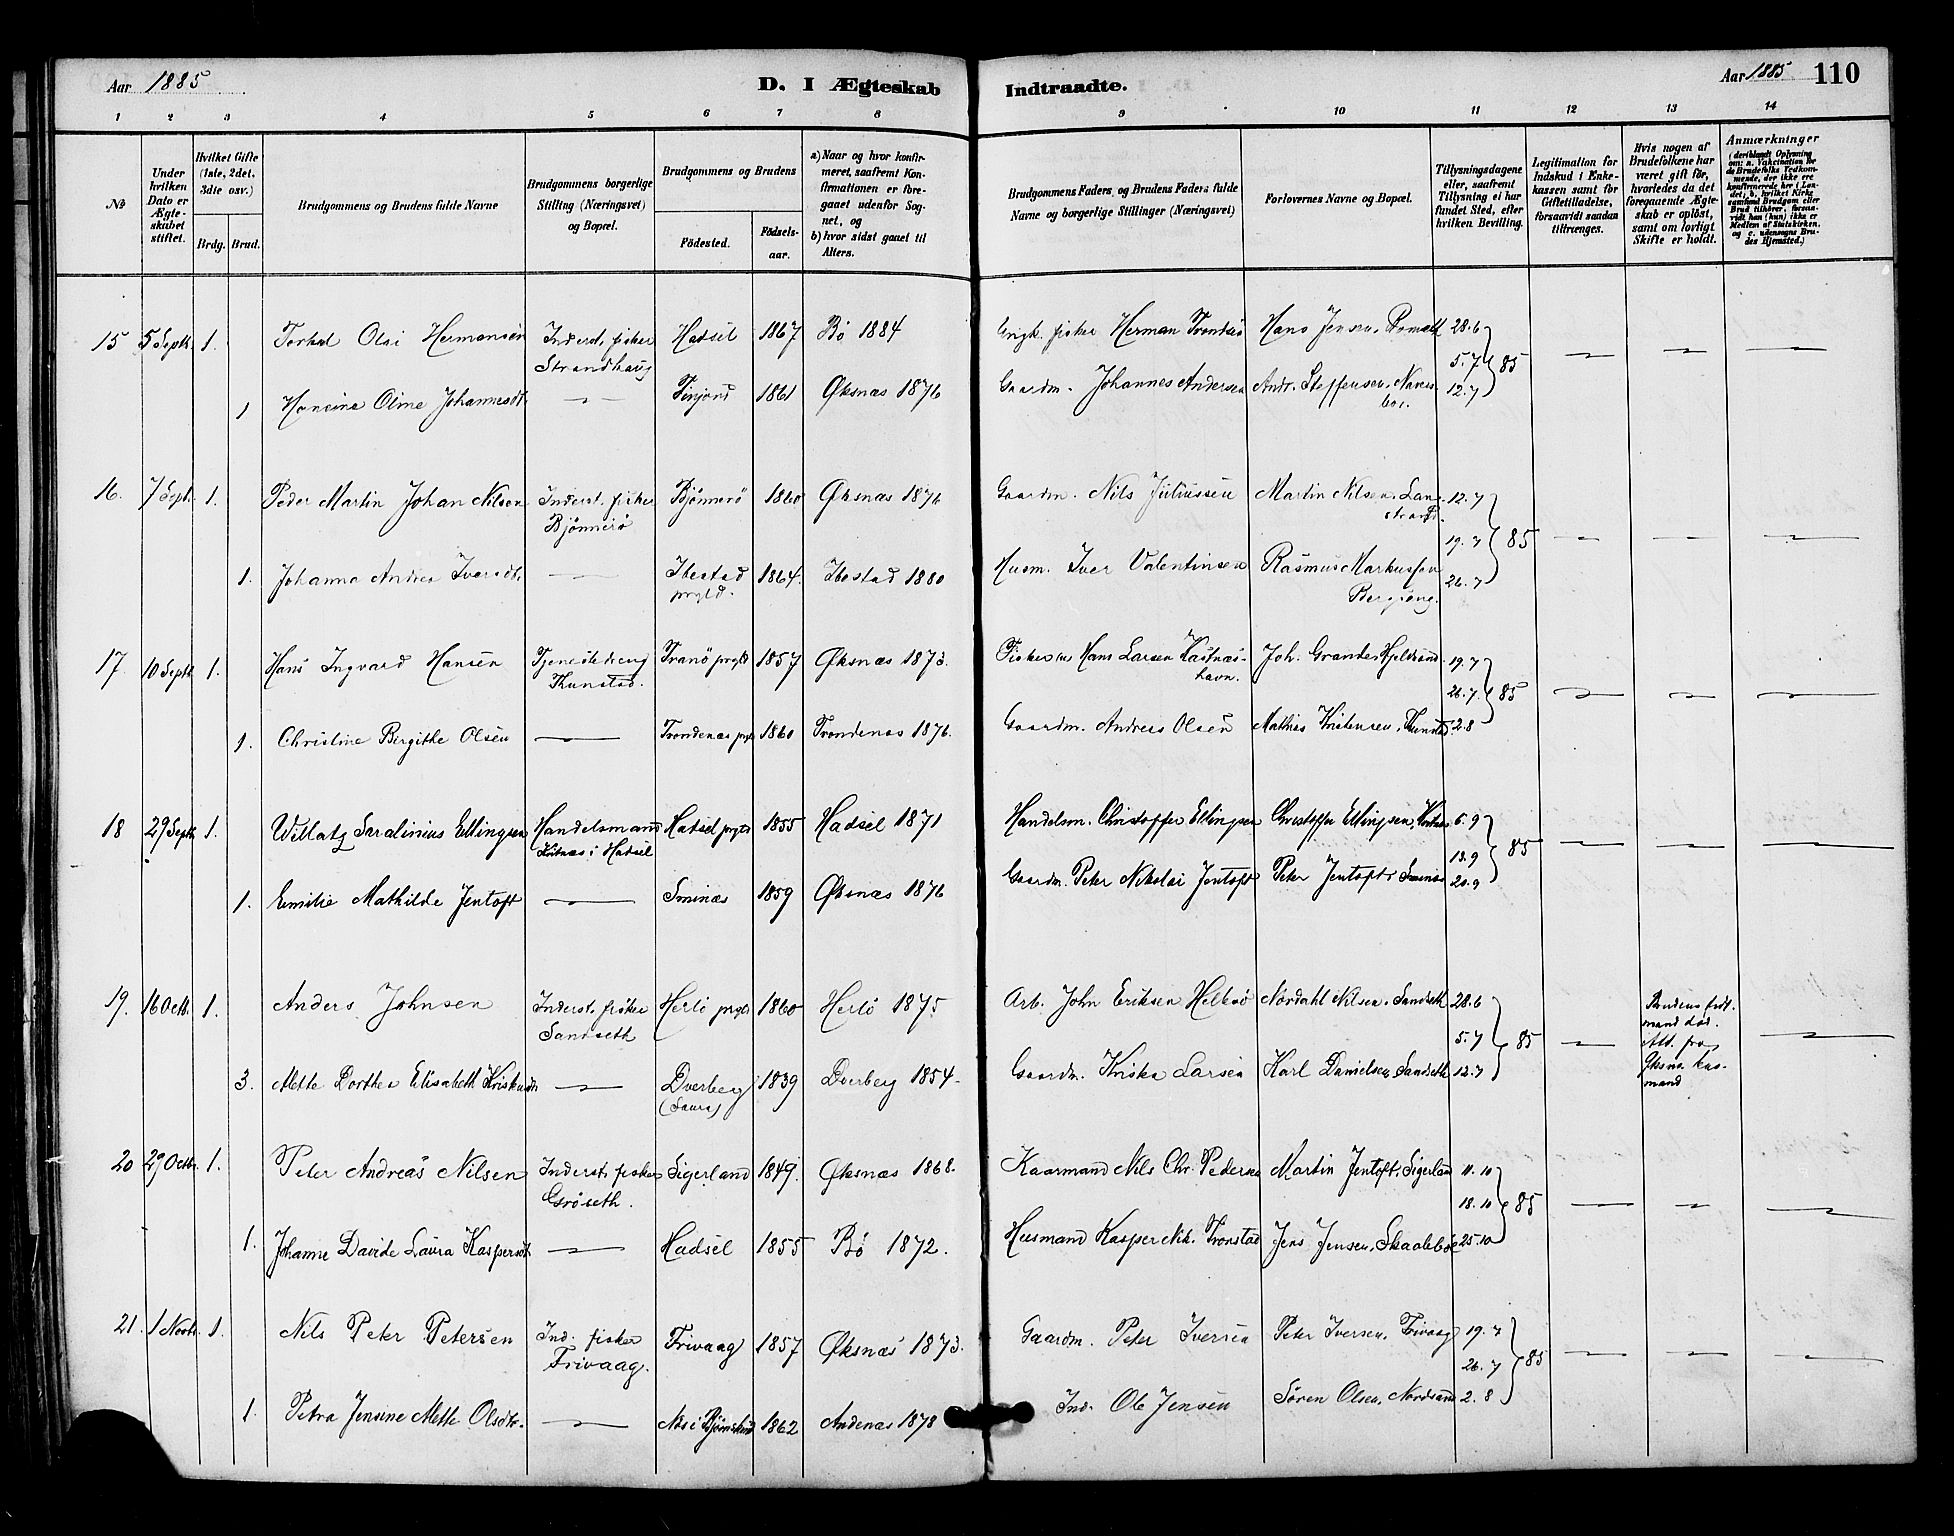 Aar 1885
D. I Ægteskab Indtraadte.
Aar 1885 110
1 2 3 4 5 6 7 8 9 10 11 12 13 14
No
Under hvilken Dato er Ægteskabet stiftet.
Hvilket Gifte (1ste, 2det, 3die osv.)
Brdg. Brud.
Brudgommens og Brudens fulde Navne
Brudgommens borgerlige Stilling (Næringsvei) og Bopæl.
Brudgommens og Brudens
Födested.
Födselsaar.
a) Naar og hvor konfirmeret, saafremt Konfirmationen er foregaaet udenfor Sognet, og
b) hvor sidst gaaet til Alters.
Brudgommens Faders og Brudens Faders fulde Navne og borgerlige Stillinger (Næringsvei)
Forlovernes Navne og Bopæl.
Tillysningsdagene eller, saafremt Tillysning ei har fundet Sted, efter hvilken Bevilling.
Legitimation for Indskud i Enkekassen samt for Giftetilladelse, forsaavidt saadan tiltrænges.
Hvis nogen af Brudefolkene har været gift för, hvorledes da det foregaaende Ægteskab er oplöst, samt om lovligt Skifte er holdt.
Anmærkninger
15 5 Sept. 1. Torkel Olai Hermansen Inderst, fisker Strandhaug Hadsel 1867 Bö 1884 Herman Trondsen Hans Jensen, 28.6
5.7 85
1 Hansine Oline Johannesdt. Finjord 1861 Øksnæs 1876 Gaardm. Johannes Andersen Andr. Steffensen, 12.7
16. 7 Sept. 1. Peder Martin Johan Nilsen Inderst, fisker Bjönnerö Bjönnerö 1860 Øksnæs 1876 Gaardm. Nils Juliussen Martin Nilsen, 12.7
19.7 85
1. Johanna Andrea Iversdt. Ibestad prgld. 1864. Ibestad 1880 Husm. Iver Valentinsen Rasmus Markussen 26.7
17. 10 Sept. 1. Hans Ingvard Hansen Tjenestedreng Kunstad. Tranö prgld 1857 Øksnæs 1873. Fisker Hans Larsen Kastnæshavn. Joh. Grander Hjeldsand 19.7
26.7 85
1. Christine Birgithe Olsen Trondenæs prgld 1860 Trondenæs 1876. Gaardm. Andreas Olsen Mathias Kristensen, Kunstad 2.8
18 29 Sept. 1. Willatz Saralinius Ellingsen Handelsmand i Hadsel Hadsel prgld 1855 Hadsel 1871 Handelsm. Christoffer Ellingsen Christoffer Ellingsen, 6.9
13.9 85
1. Emilie Mathilde Jentoft Sminæs 1859 Øksnæs 1876 Gaardm. Peter Nikolai Jentoft Peter Jentoft, Sminæs 20.9
19. 16 Octb. 1. Anders Johnsen Inderst, fisker Sandseth Herlö prgld 1860 Herlö 1875 Arb. John Eriksen Nordahl Nilsen, Sandseth 28.6
5.7 85
3. Mette Dorthea Elisabeth Dverberg 1839 Dverberg 1854. Gaardm. Larsen Karl Danielsen, Sandseth 12.7
20 29 Octb. 1. Peter Andreas Nilsen Inderst, fisker Gröseth. Sigerland 1849. Øksnæs 1868. Kaarmand Nils Chr. Pedersen Martin Jentoft, Sigerland 11.10
18.10 85
1. Johanne Davide Laura Kaspersdt. Hadsel 1855 Bö 1872. Husmand Kasper Nik. Tronstad Jens Jensen, Skaaleböe 25.10
21. 1 Novb. 1. Nils Peter Petersen Ind. fisker Frivaag. Frivaag 1857 Øksnæs 1873. Gaardm. Peter Iversen Peter Iversen, Frivaag 19.7
26.7 85
1. Petra Jensine Mette Olsdtr. 1862 Andenæs 1878 Ind. Ole Jensen Sören Olsen, Nordsand 2.8